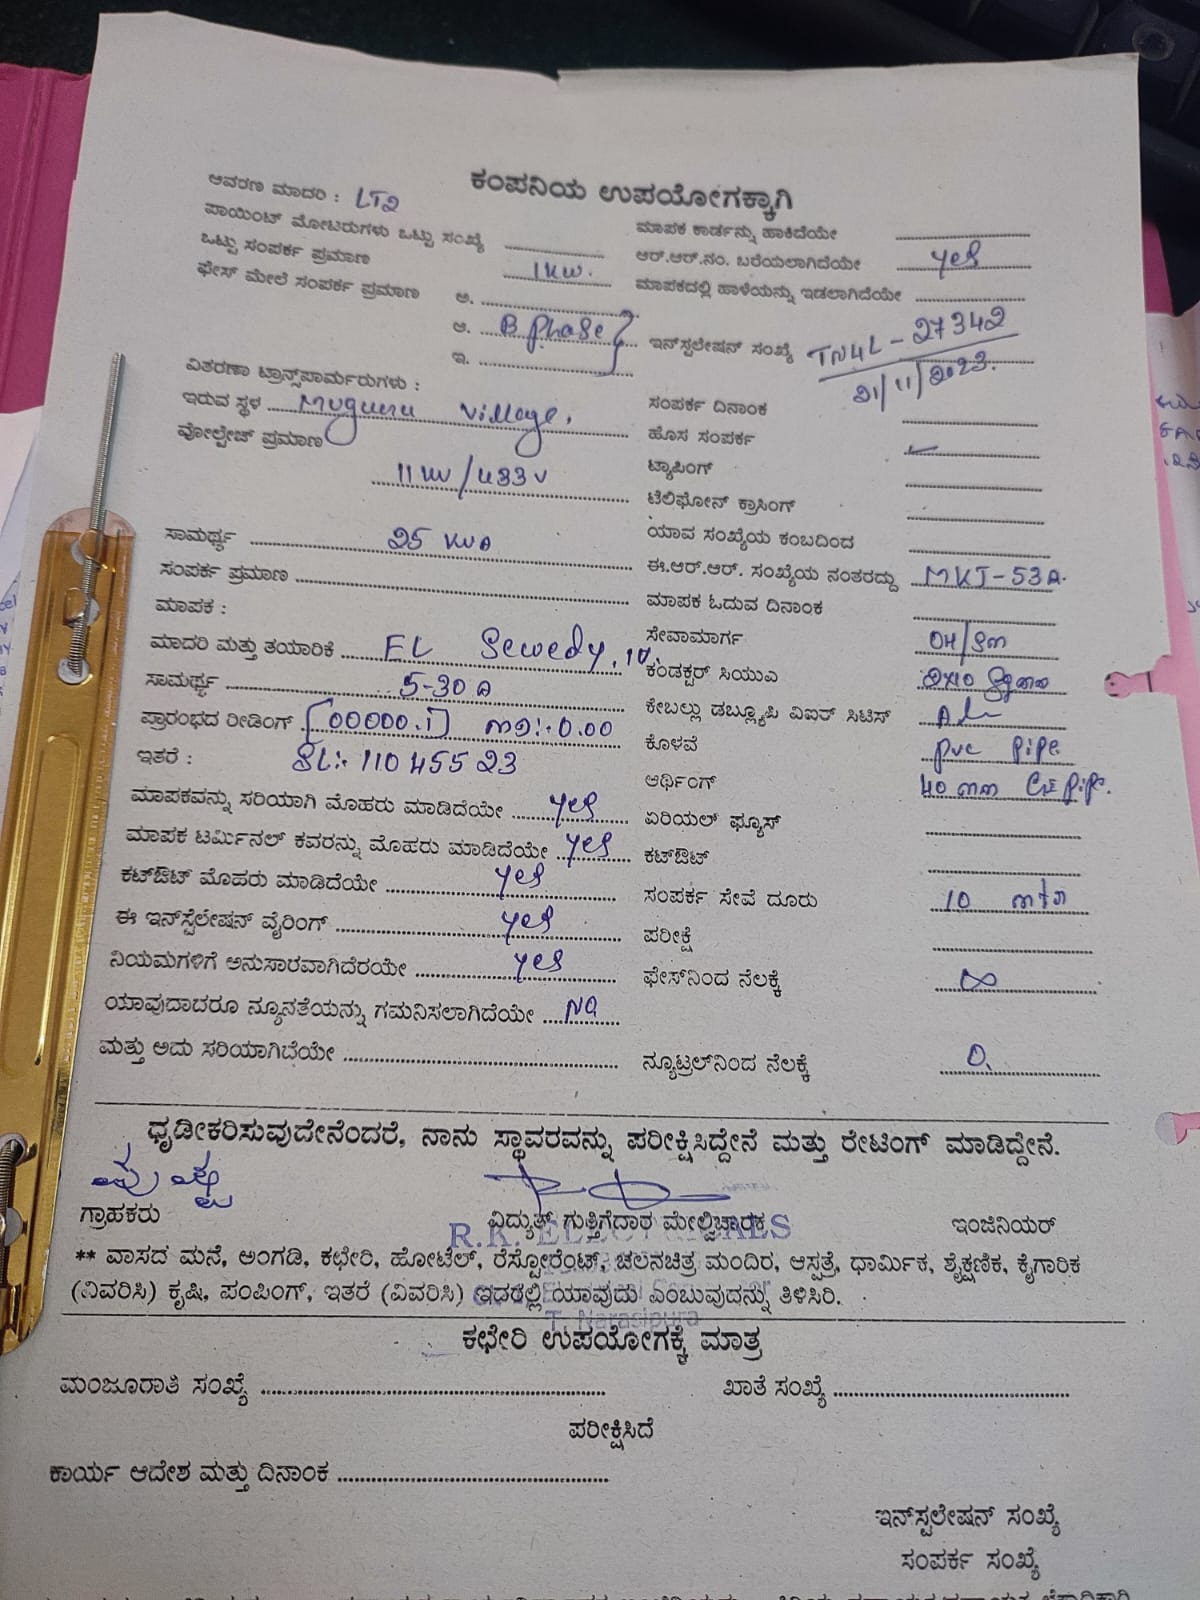 ಕಂಪನಿಯ ಉಪಯೋಗಕ್ಕಾಗಿ
ಆವರಣ ಮಾದರಿ : LT2
ಪಾಯಿಂಟ್ ಮೋಟರುಗಳು ಒಟ್ಟು ಸಂಖ್ಯೆ
ಒಟ್ಟು ಸಂಪರ್ಕ ಪ್ರಮಾಣ 1KW.
ಫೇಸ್ ಮೇಲೆ ಸಂಪರ್ಕ ಪ್ರಮಾಣ ಅ.
ಆ. B phase
ಇ.
ವಿತರಣಾ ಟ್ರಾನ್ಸ್‌ಫಾರ್ಮರುಗಳು :
ಇರುವ ಸ್ಥಳ Muguru Village.
ವೋಲ್ಟೇಜ್ ಪ್ರಮಾಣ
11KV/433V
ಸಾಮರ್ಥ್ಯ 25 KVA
ಸಂಪರ್ಕ ಪ್ರಮಾಣ
ಮಾಪಕ :
ಮಾದರಿ ಮತ್ತು ತಯಾರಿಕೆ EL Sewedy, 10.
ಸಾಮರ್ಥ್ಯ 5-30A
ಪ್ರಾರಂಭದ ರೀಡಿಂಗ್ [00000.1] MD:-0.00
ಇತರೆ : SL:- 11045523
ಮಾಪಕವನ್ನು ಸರಿಯಾಗಿ ಮೊಹರು ಮಾಡಿದೆಯೇ yes
ಮಾಪಕ ಟರ್ಮಿನಲ್ ಕವರನ್ನು ಮೊಹರು ಮಾಡಿದೆಯೇ yes
ಕಟ್‌ಔಟ್ ಮೊಹರು ಮಾಡಿದೆಯೇ yes
ಈ ಇನ್‌ಸ್ಟೆಲೇಷನ್ ವೈರಿಂಗ್ yes
ನಿಯಮಗಳಿಗೆ ಅನುಸಾರವಾಗಿದೆರಯೇ yes
ಯಾವುದಾದರೂ ನ್ಯೂನತೆಯನ್ನು ಗಮನಿಸಲಾಗಿದೆಯೇ NO
ಮತ್ತು ಅದು ಸರಿಯಾಗಿದೆಯೇ
ಮಾಪಕ ಕಾರ್ಡನ್ನು ಹಾಕಿದೆಯೇ
ಆರ್.ಆರ್.ನಂ. ಬರೆಯಲಾಗಿದೆಯೇ yes
ಮಾಪಕದಲ್ಲಿ ಹಾಳೆಯನ್ನು ಇಡಲಾಗಿದೆಯೇ
ಇನ್‌ಸ್ಟಲೇಷನ್ ಸಂಖ್ಯೆ TN4L - 27342
21/11/2023.
ಸಂಪರ್ಕ ದಿನಾಂಕ
ಹೊಸ ಸಂಪರ್ಕ
ಟ್ಯಾಪಿಂಗ್
ಟೆಲಿಫೋನ್ ಕ್ರಾಸಿಂಗ್
ಯಾವ ಸಂಖ್ಯೆಯ ಕಂಬದಿಂದ
ಈ.ಆರ್.ಆರ್. ಸಂಖ್ಯೆಯ ನಂತರದ್ದು MKT-53A.
ಮಾಪಕ ಓದುವ ದಿನಾಂಕ
ಸೇವಾಮಾರ್ಗ OH/SM
ಕಂಡಕ್ಟರ್ ಸಿಯುಎ 2X10 Sqmm
ಕೇಬಲ್ಲು ಡಬ್ಲ್ಯೂಪಿ ವಿಐಆರ್ ಸಿಟಿಸ್
ಕೊಳವೆ pvc pipe.
ಆರ್ಥಿಂಗ್ 40 mm GI pipe.
ಏರಿಯಲ್ ಫ್ಯೂಸ್
ಕಟ್‌ಔಟ್
ಸಂಪರ್ಕ ಸೇವೆ ದೂರು 10 mtr
ಪರೀಕ್ಷೆ
ಫೇಸ್‌ನಿಂದ ನೆಲಕ್ಕೆ ∞
ನ್ಯೂಟ್ರಲ್‌ನಿಂದ ನೆಲಕ್ಕೆ 0.
ಧೃಡೀಕರಿಸುವುದೇನೆಂದರೆ, ನಾನು ಸ್ಥಾವರವನ್ನು ಪರೀಕ್ಷಿಸಿದ್ದೇನೆ ಮತ್ತು ರೇಟಿಂಗ್ ಮಾಡಿದ್ದೇನೆ.
ಗ್ರಾಹಕರು ವಿದ್ಯುತ್ ಗುತ್ತಿಗೆದಾರ ಮೇಲ್ವಿಚಾರಕ ಇಂಜಿನಿಯರ್
R.K. ELECTRICALS
** ವಾಸದ ಮನೆ, ಅಂಗಡಿ, ಕಛೇರಿ, ಹೋಟೆಲ್, ರೆಸ್ಟೋರೆಂಟ್, ಚಲನಚಿತ್ರ ಮಂದಿರ, ಆಸ್ಪತ್ರೆ, ಧಾರ್ಮಿಕ, ಶೈಕ್ಷಣಿಕ, ಕೈಗಾರಿಕ
(ವಿವರಿಸಿ) ಕೃಷಿ, ಪಂಪಿಂಗ್, ಇತರೆ (ವಿವರಿಸಿ) ಇದರಲ್ಲಿ ಯಾವುದು ಎಂಬುವುದನ್ನು ತಿಳಿಸಿರಿ.
T. Narasipura
ಕಛೇರಿ ಉಪಯೋಗಕ್ಕೆ ಮಾತ್ರ
ಮಂಜೂರಾತಿ ಸಂಖ್ಯೆ ಖಾತೆ ಸಂಖ್ಯೆ
ಪರೀಕ್ಷಿಸಿದೆ
ಕಾರ್ಯ ಆದೇಶ ಮತ್ತು ದಿನಾಂಕ
ಇನ್‌ಸ್ಟಲೇಷನ್ ಸಂಖ್ಯೆ
ಸಂಪರ್ಕ ಸಂಖ್ಯೆ